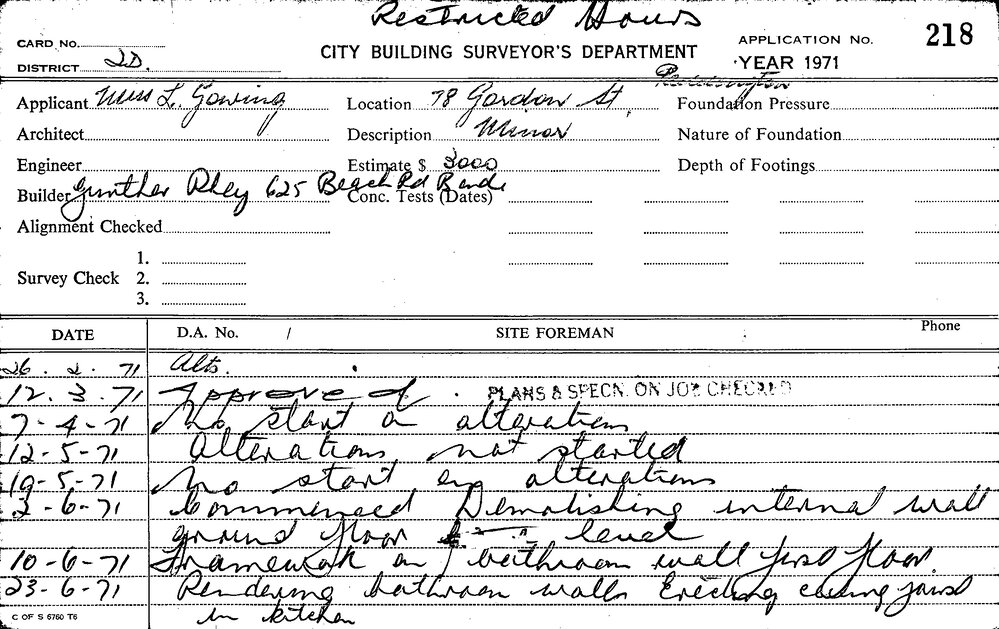 Restricted Hours
CARD NO.
CITY BUILDING SURVEYOR'S DEPARTMENT
APPLICATION No. 218
DISTRICT 2D.
YEAR 1971
Paddington
Applicant Miss L. Gowing Location 78 Gordon St, Foundation Pressure
Architect Description Minor Nature of Foundation
Engineer Estimate $ 3000 Depth of Footings
Builder Gunther Rhey 625 Beach Rd Conc. Tests (Dates)
Alignment Checked
1.
Survey Check 2.
3.
DATE D.A. No. / SITE FOREMAN : Phone
26. 2. 71 Alts.
12. 3. 71 Approved. PLANS & SPECN. ON JOB CHECKED
7-4-71 No start on alterations
12-5-71 Alterations not started
19-5-71 No start on alterations
2-6-71 Commenced Demolishing internal wall
ground floor level
10-6-71 Framework on bathroom wall first floor.
23-6-71 Rendering bathroom walls Erecting ceiling joists
in kitchen
C OF S 6760 T6